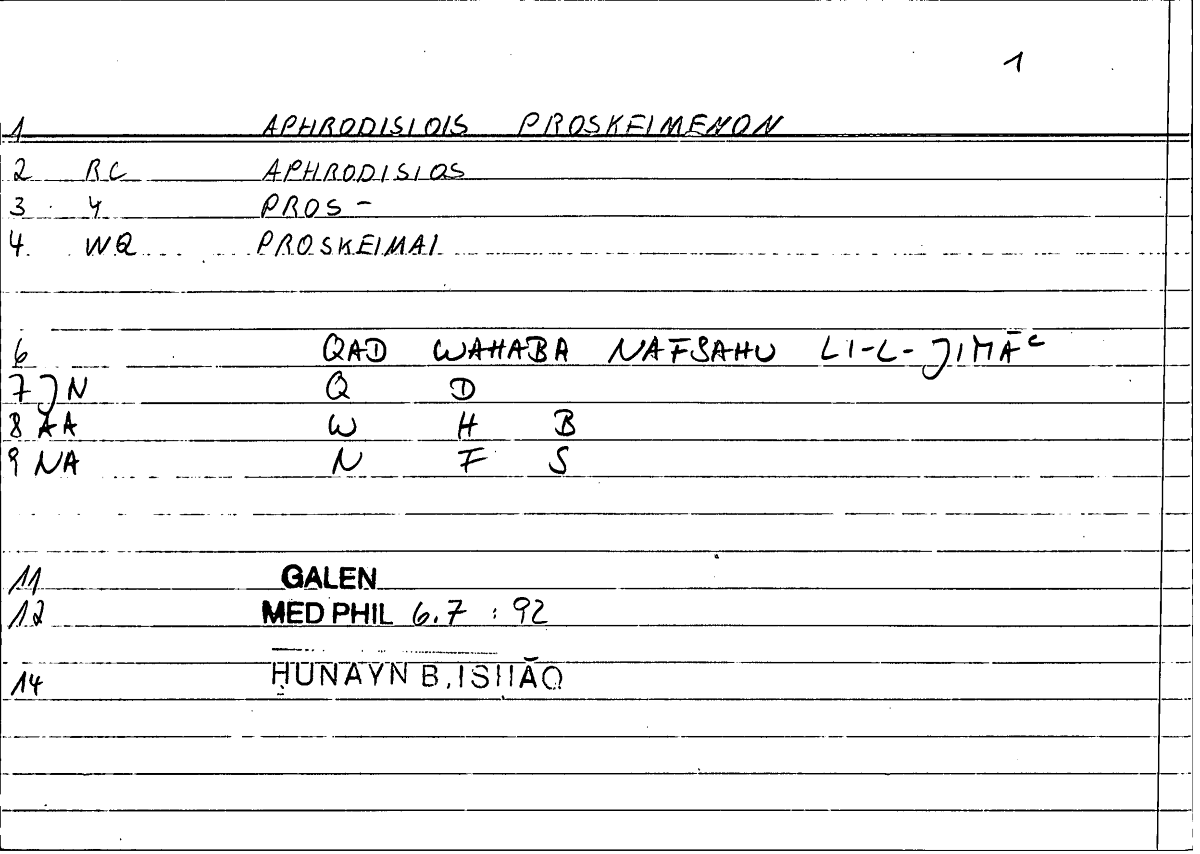 1
1 APHRODISIOIS PROSKEIMENON
2 RC APHRODISIOS
3 4 PROS-
4. WQ PROSKEIMAI
6 QAD WAHABA NAFSAHU LI-L-JIMĀᶜ
7 JN Q D
8 AA W H B
9 NA N F S
11 GALEN
12 MED PHIL 6.7 : 92
14 ḤUNAYN B. ISḤĀQ